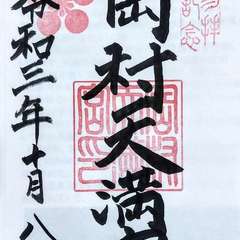 岡村天満宮
令和三年十月八